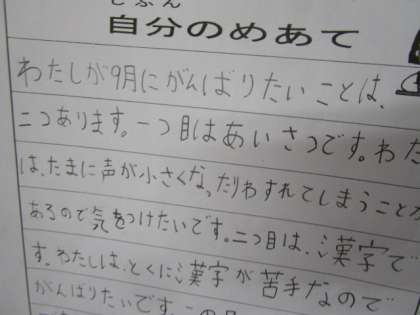 じぶん
自分のめあて
わたしが9月にがんばりたいことは、
二つあります。一つ目はあいさつです。わた
は、たまに声が小さくなったりわすれてしまうことが
あるので気をつけたいです。二つ目は、漢字で
す。わたしは、とくに漢字が苦手なので
がんばりたいです。